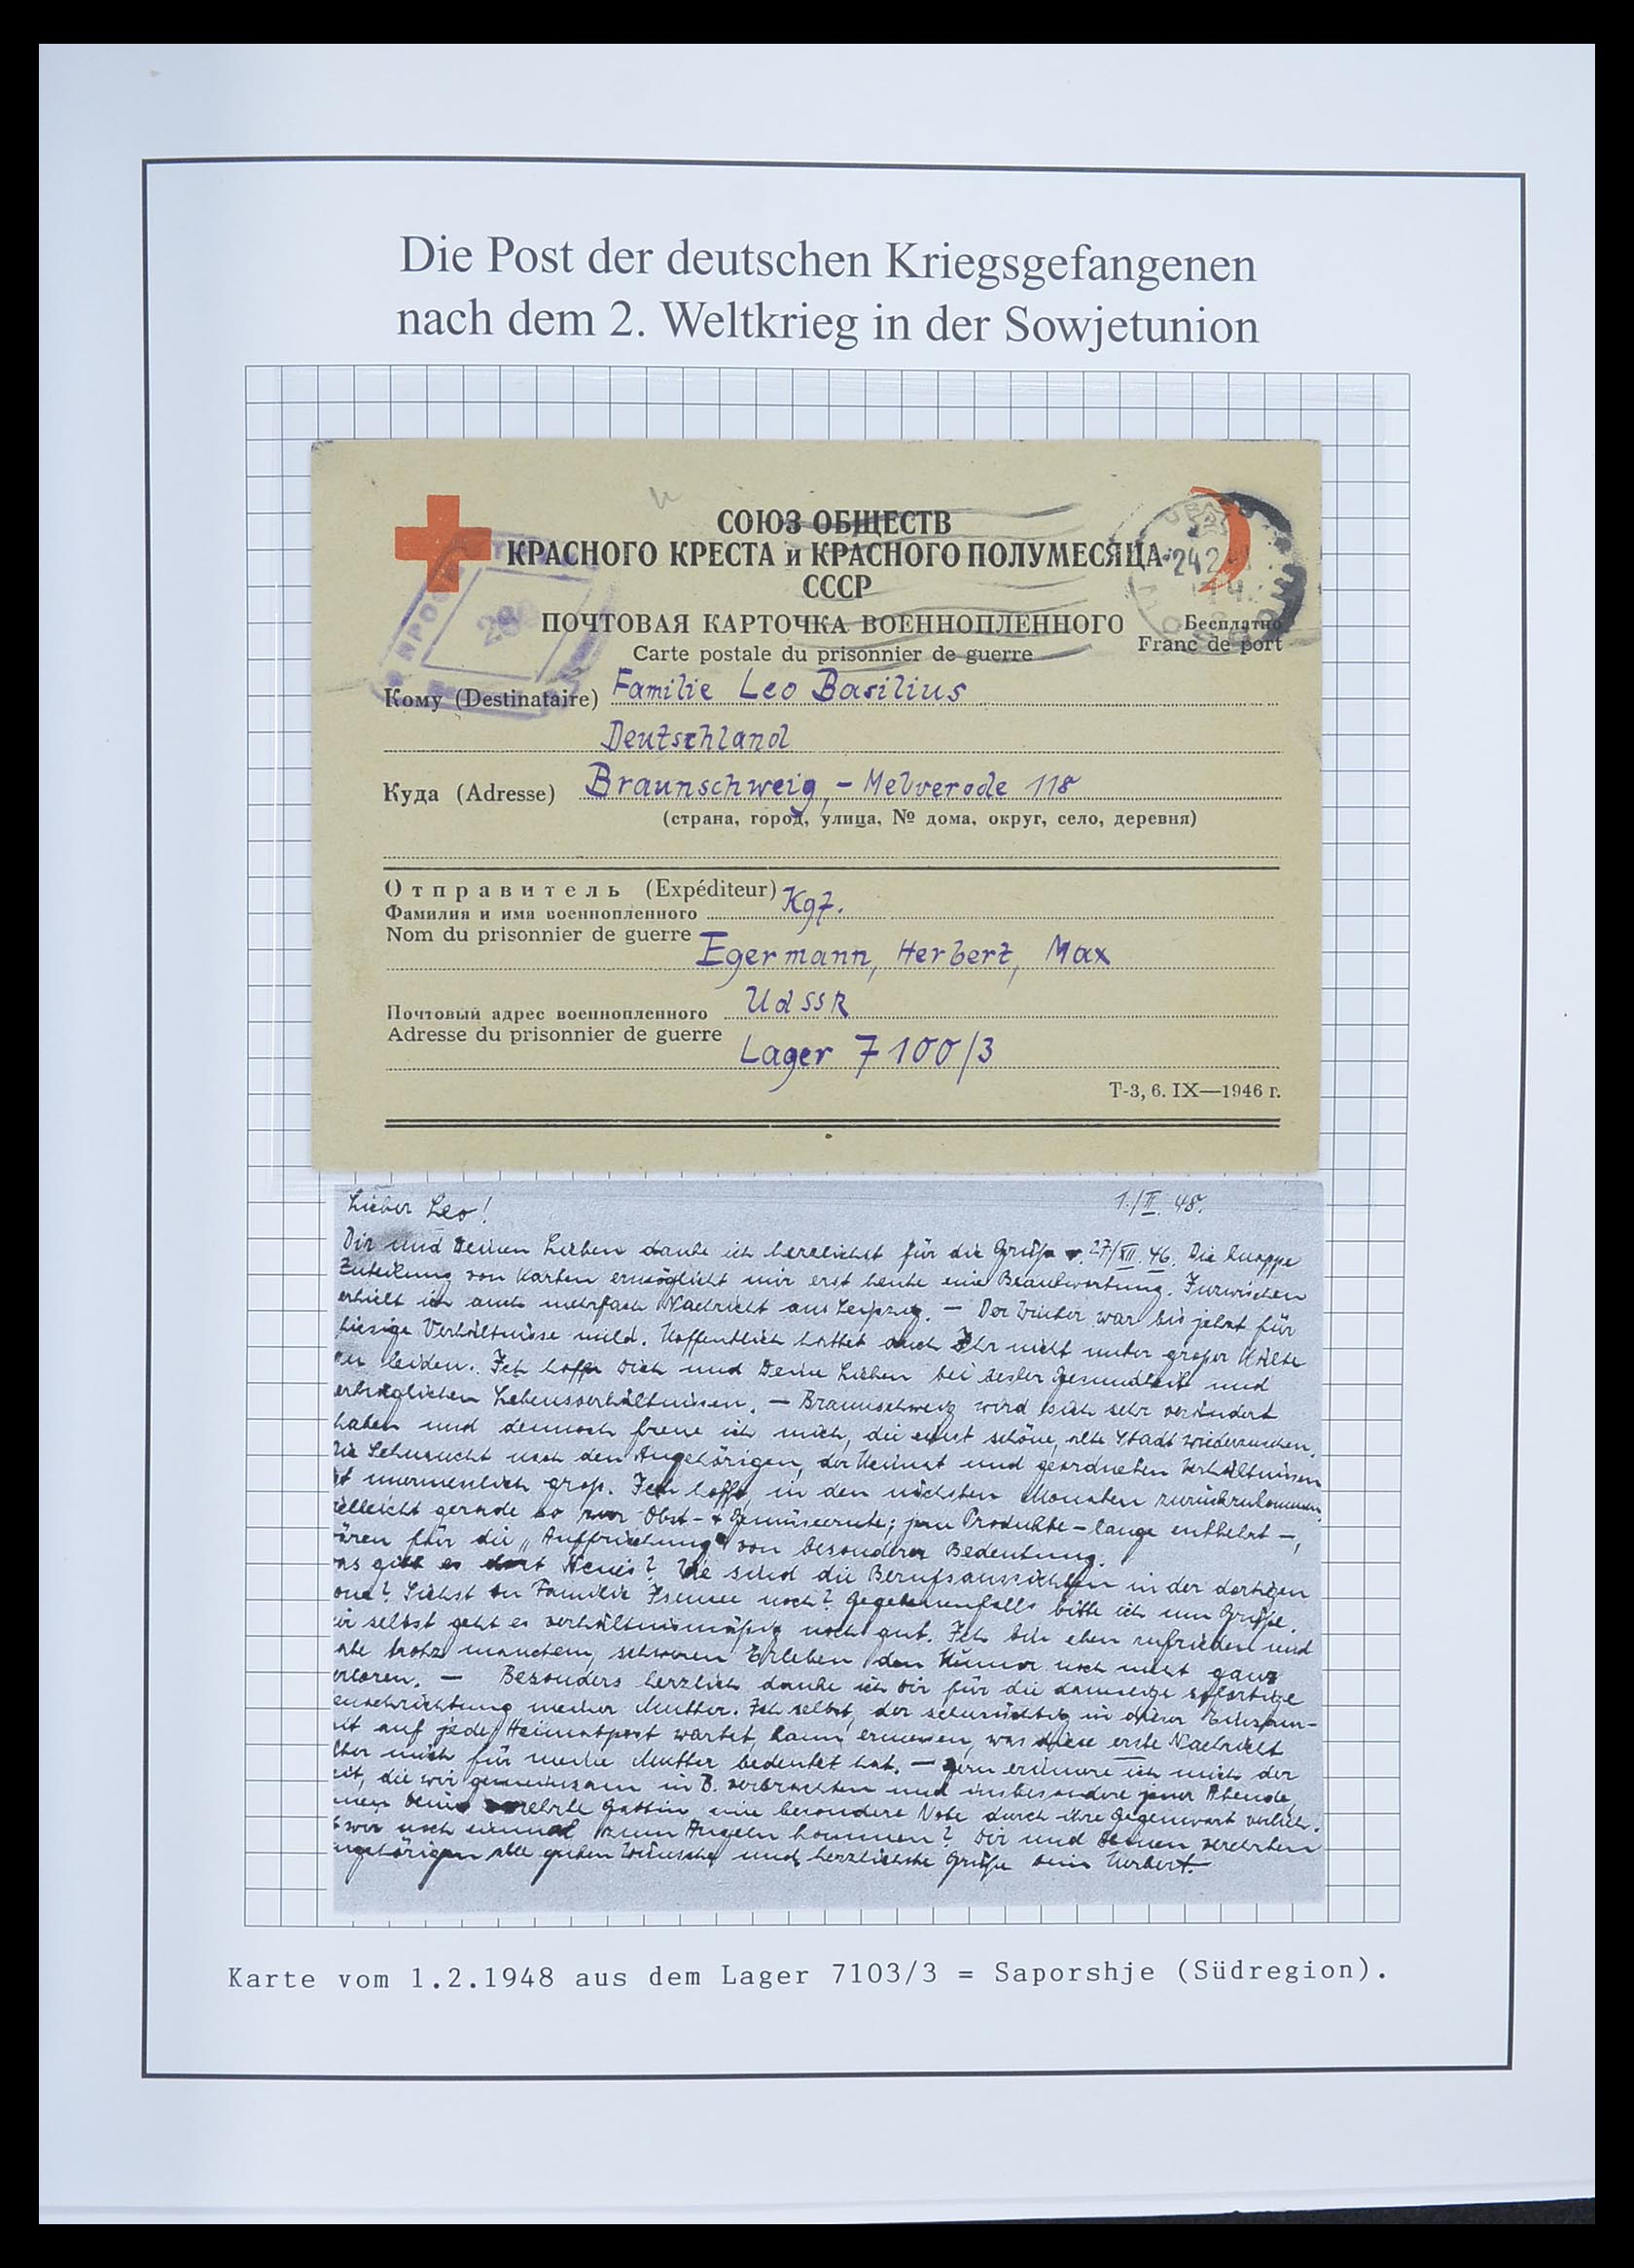 Die Post der deutschen Kriegsgefangenen
nach dem 2. Weltkrieg in der Sowjetunion
СОЮЗ ОБЩЕСТВ
КРАСНОГО КРЕСТА и КРАСНОГО ПОЛУМЕСЯЦА
СССР
ПОЧТОВАЯ КАРТОЧКА ВОЕННОПЛЕННОГО
Бесплатно
Carte postale du prisonnier de guerre
Franc de port
Кому (Destinataire) Familie Leo Basilius
Deutschland
Куда (Adresse) Braunschweig, - Melverode 118
(страна, город, улица, № дома, округ, село, деревня)
Отправитель (Expéditeur) Kgf.
Фамилия и имя военнопленного
Nom du prisonnier de guerre Egermann, Herbert, Max
Почтовый адрес военнопленного UdSSR
Adresse du prisonnier de guerre Lager 7100/3
Т-3, 6. IX—1946 г.
Lieber Leo! 1./II. 48.
Dir und Deinen Lieben danke ich herzlichst für die Grüße v. 27/XII. 46. Die knappe
Zuteilung von Karten ermöglicht mir erst heute eine Beantwortung. Inzwischen
erhielt ich auch mehrfach Nachricht aus Leipzig. — Der Winter war bis jetzt für
hiesige Verhältnisse mild. Hoffentlich hattet auch Ihr nicht unter großer Kälte
zu leiden. Ich hoffe Dich und Deine Lieben bei bester Gesundheit und
erträglichen Lebensverhältnissen. — Braunschweig wird sich sehr verändert
haben und dennoch freue ich mich, die einst schöne, alte Stadt wiederzusehen.
Die Sehnsucht nach den Angehörigen, der Heimat und geordneten Verhältnissen
ist unermesslich groß. Ich hoffe, in den nächsten Monaten zurückzukommen
vielleicht gerade so zur Obst- & Gemüseernte; jene Produkte – lange entbehrt –,
wären für die „Auffrischung" von besonderer Bedeutung.
as gibt es dort Neues? Wie sind die Berufsaussichten in der dortigen
one? Siehst Du Familie noch? Gegebenenfalls bitte ich um Grüße.
ir selbst geht es verhältnismäßig noch gut. Ich bin eben zufrieden und
abe trotz manchem, schweren Erleben den Humor noch nicht ganz
erloren. — Besonders herzlich danke ich Dir für die damalige sofortige
enachrichtung meiner Mutter. Ich selbst, der sehnsüchtig in dieser Einsam-
eit auf jede Heimatpost wartet, kann ermessen, was diese erste Nachricht
über mich für meine Mutter bedeutet hat. — Gern erinnere ich mich der
eit, die wir gemeinsam in B. verbrachten und insbesondere jener Abende,
enen Deine verehrte Gattin eine besondere Note durch ihre Gegenwart verlieh.
wir noch einmal zum Angeln kommen? Dir und Deinen verehrten
ngehörigen alle guten Wünsche und herzlichste Grüße Dein Herbert.
Karte vom 1.2.1948 aus dem Lager 7103/3 = Saporshje (Südregion).